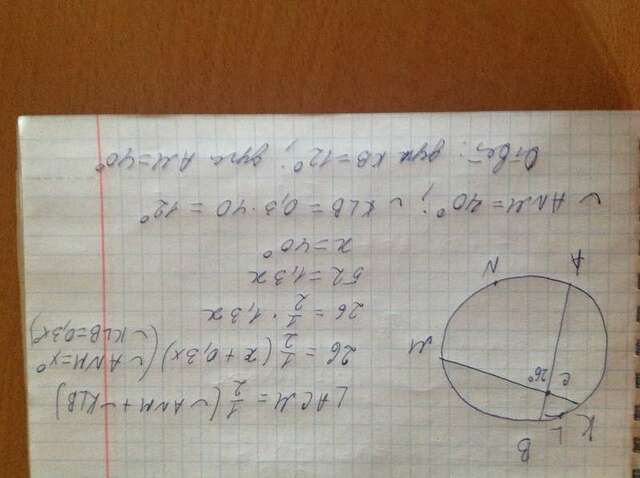 ∠ACM = 1/2 (◡ANM + ◡KLB)
26 = 1/2 (x + 0,3x) (◡ANM = x°
◡KLB = 0,3x)
26 = 1/2 · 1,3x
52 = 1,3x
x = 40°
◡ANM = 40°; ◡KLB = 0,3·40 = 12°
Ответ: дуга KB = 12°; дуга AM = 40°
B
K
L
C
26°
M
N
A